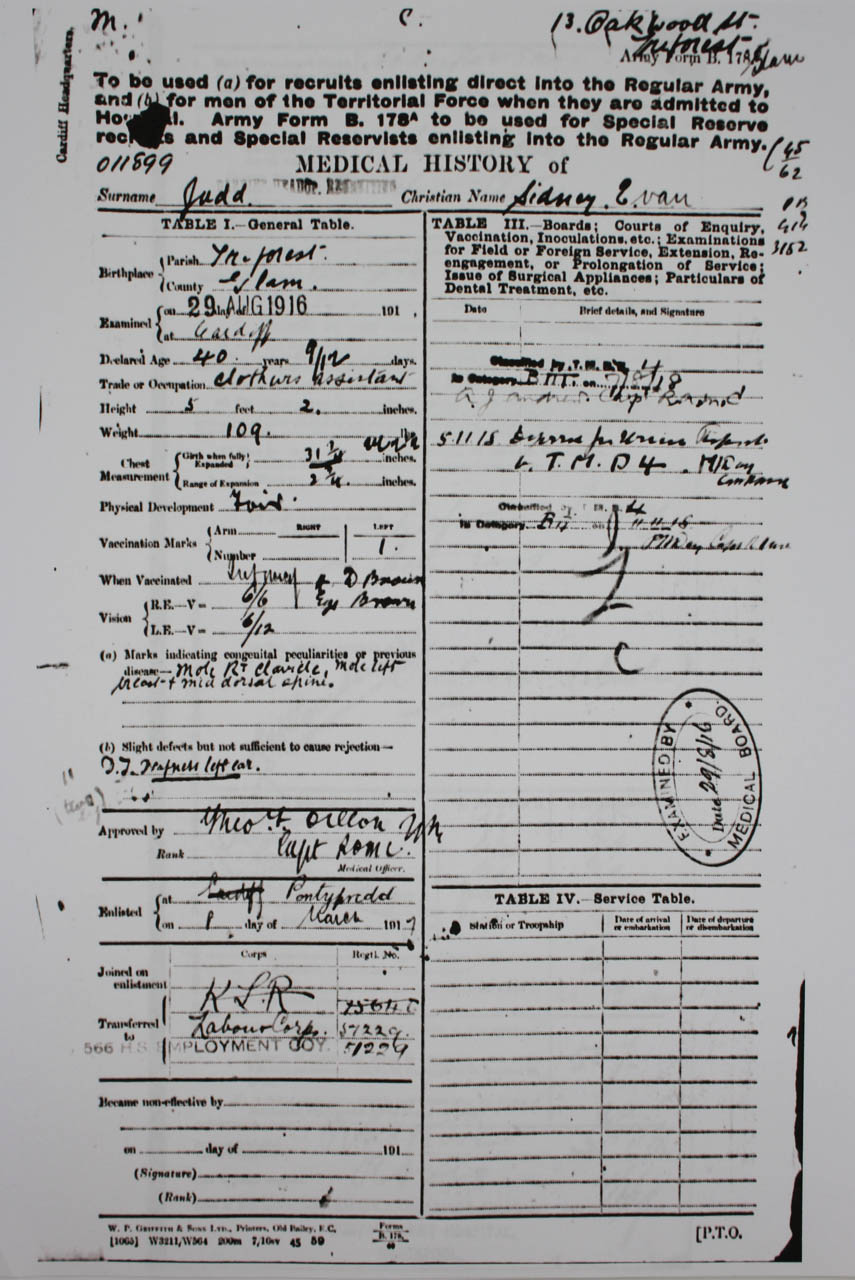 M. C. 13. Oakwood St.
Treforest
Army Form B. 178
Glam
Cardiff Headquarters.
To be used (a) for recruits enlisting direct into the Regular Army,
and (b) for men of the Territorial Force when they are admitted to
Hospital. Army Form B. 178A to be used for Special Reserve
recruits and Special Reservists enlisting into the Regular Army.
45
62
011899 MEDICAL HISTORY of
Surname Judd. Christian Name Sidney Evan
3152
TABLE I.—General Table.
Birthplace Parish Treforest.
County Glam.
Examined on 29 AUG 1916 191
at Cardiff
Declared Age 40 years 9/12 days.
Trade or Occupation Clothiers assistant
Height 5 feet 2. inches.
Weight 109. lbs.
Chest Measurement Girth when fully Expanded 31 inches.
Range of Expansion 2 inches.
Physical Development Fair.
Vaccination Marks Arm RIGHT LEFT
Number 1.
When Vaccinated Infancy
Vision R.E.—V= 6/6 Eyes Brown
L.E.—V= 6/12
(a) Marks indicating congenital peculiarities or previous
disease— Mole Rt Clavicle, Mole left
breast + mid dorsal spine.
(b) Slight defects but not sufficient to cause rejection—
D.T. Deafness left ear.
Approved by Dillon
Rank Capt RAMC.
Medical Officer.
Enlisted at Cardiff Pontypridd
on 1 day of March 1917
Corps Regtl. No.
Joined on enlistment
Transferred to K L R
Labour Corps. 51229.
566 H.S. EMPLOYMENT COY. 51229
Became non-effective by
on day of 191
(Signature)
(Rank)
TABLE III.—Boards; Courts of Enquiry,
Vaccination, Inoculations, etc.; Examinations
for Field or Foreign Service, Extension, Re-
engagement, or Prolongation of Service;
Issue of Surgical Appliances; Particulars of
Dental Treatment, etc.
Date Brief details, and Signature
Classified by T.M.B. 4
in Category B III on
5.11.18
T. M. B 4.
Classified by T.M.B. 4
in Category B II on 11.11.18
C
EXAMINED BY
Date 29/8/16
MEDICAL BOARD.
TABLE IV.—Service Table.
Station or Troopship Date of arrival or embarkation Date of departure or disembarkation
W. P. GRIFFITH & SONS LTD., Printers, Old Bailey, E.C.
[1065] W3211/W564 200m 7/16 45 59
Forms
B. 178.
[P.T.O.